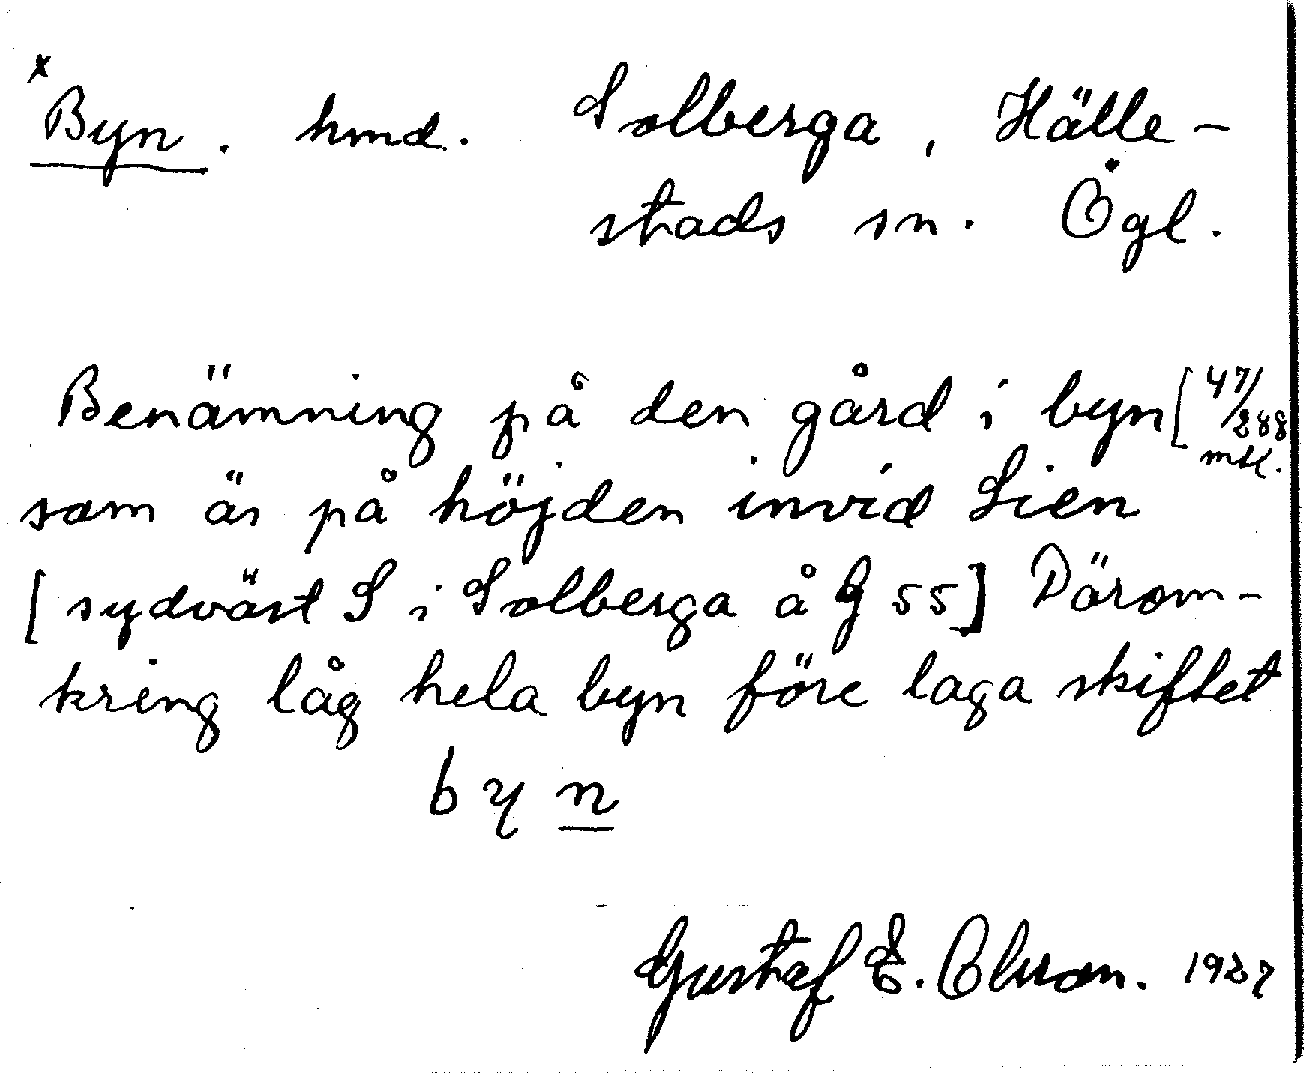 x
Byn. hmd. Solberga, Hälle-
stads sn. Ögl.
Benämning på den gård i byn [47/288
mtl.
som är på höjden invid Sien
[sydväst S i Solberga å G 55] Därom-
kring låg hela byn före laga skiftet
byn
Gustaf E. Olsson. 1927